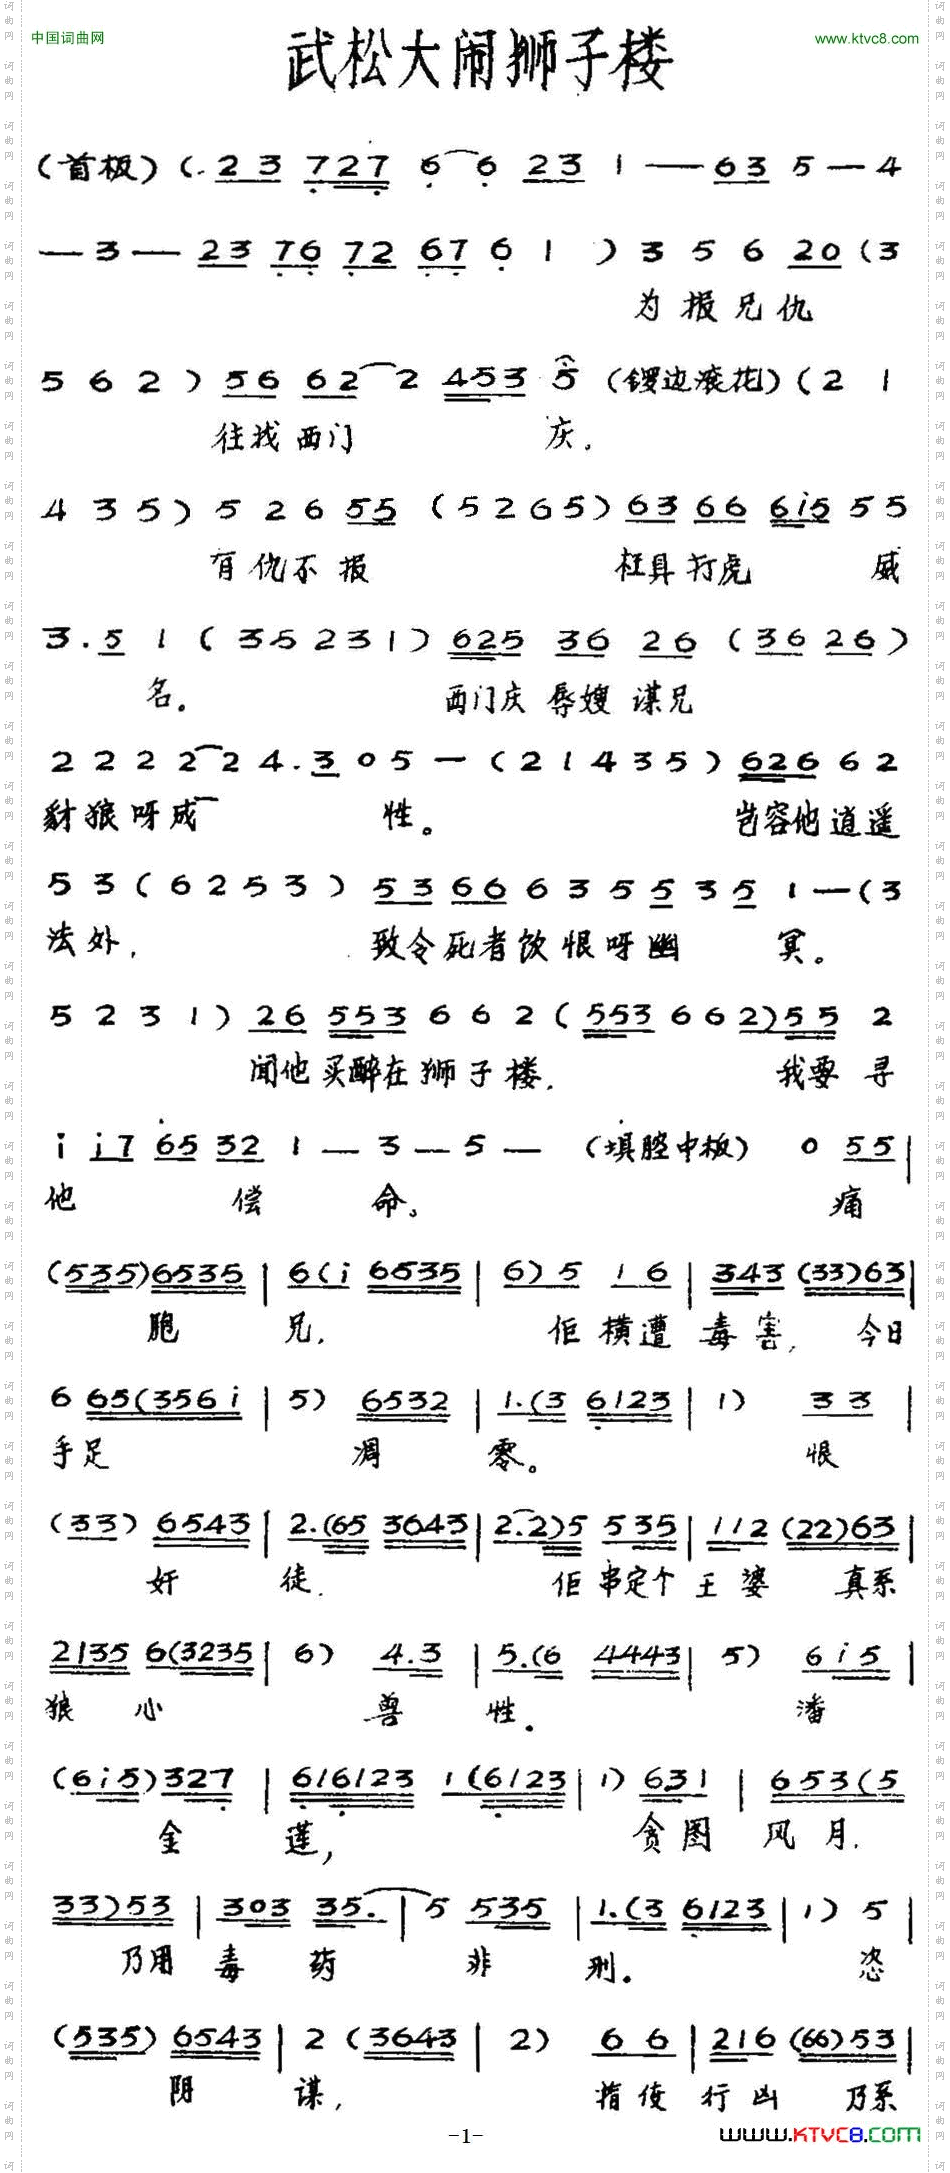 中国词曲网
www.ktvc8.com
武松大闹狮子楼
(首板) (. 2 3 7 2 7 6 6 2 3 1 — 6 3 5 — 4
— 3 — 2 3 7 6 7 2 6 7 6 1 ) 3 5 6 2 0 ( 3
为 报 兄 仇
5 6 2 ) 5 6 6 2 2 4 5 3 5 (锣边滚花) ( 2 1
往找 西门 庆.
4 3 5 ) 5 2 6 5 5 ( 5 2 6 5 ) 6 3 6 6 6 i 5 5 5
有 仇 不 报 枉具打虎 威
3 . 5 1 ( 3 5 2 3 1 ) 6 2 5 3 6 2 6 ( 3 6 2 6 )
名。 西门庆 辱嫂 谋兄
2 2 2 2 2 4 . 3 0 5 — ( 2 1 4 3 5 ) 6 2 6 6 2
豺 狼 呀 成 性。 岂容他 逍遥
5 3 ( 6 2 5 3 ) 5 3 6 6 6 3 5 5 3 5 1 — ( 3
法外, 致令死者饮 恨 呀 幽 冥。
5 2 3 1 ) 2 6 5 5 3 6 6 2 ( 5 5 3 6 6 2 ) 5 5 2
闻他 买醉在 狮 子 楼. 我要 寻
i i 7 6 5 3 2 1 — 3 — 5 — (填腔中板) 0 5 5 |
他 偿 命。 痛
( 5 3 5 ) 6 5 3 5 | 6 ( i 6 5 3 5 | 6 ) 5 1 6 | 3 4 3 ( 3 3 ) 6 3 |
胞 兄, 佢 横 遭 毒 害, 今日
6 6 5 ( 3 5 6 i | 5 ) 6 5 3 2 | 1 . ( 3 6 1 2 3 | 1 ) 3 3 |
手足 凋 零。 恨
( 3 3 ) 6 5 4 3 | 2 . ( 6 5 3 6 4 3 | 2 . 2 ) 5 5 3 5 | 1 1 2 ( 2 2 ) 6 3 |
奸 徒. 佢 串定个 王 婆 真系
2 1 3 5 6 ( 3 2 3 5 | 6 ) 4 . 3 | 5 . ( 6 4 4 4 3 | 5 ) 6 i 5 |
狼 心 兽 性. 潘
( 6 i 5 ) 3 2 7 | 6 1 6 1 2 3 1 ( 6 1 2 3 | 1 ) 6 3 1 | 6 5 3 ( 5
金 莲, 贪图 风 月.
3 3 ) 5 3 | 3 0 3 3 5 . | 5 5 3 5 | 1 . ( 3 6 1 2 3 | 1 ) 5 |
乃用 毒 药 非 刑. 恣
( 5 3 5 ) 6 5 4 3 | 2 ( 3 6 4 3 | 2 ) 6 6 | 2 1 6 ( 6 6 ) 5 3 |
阴 谋, 指使 行 凶 乃系
-1-
www.KTVC8.com